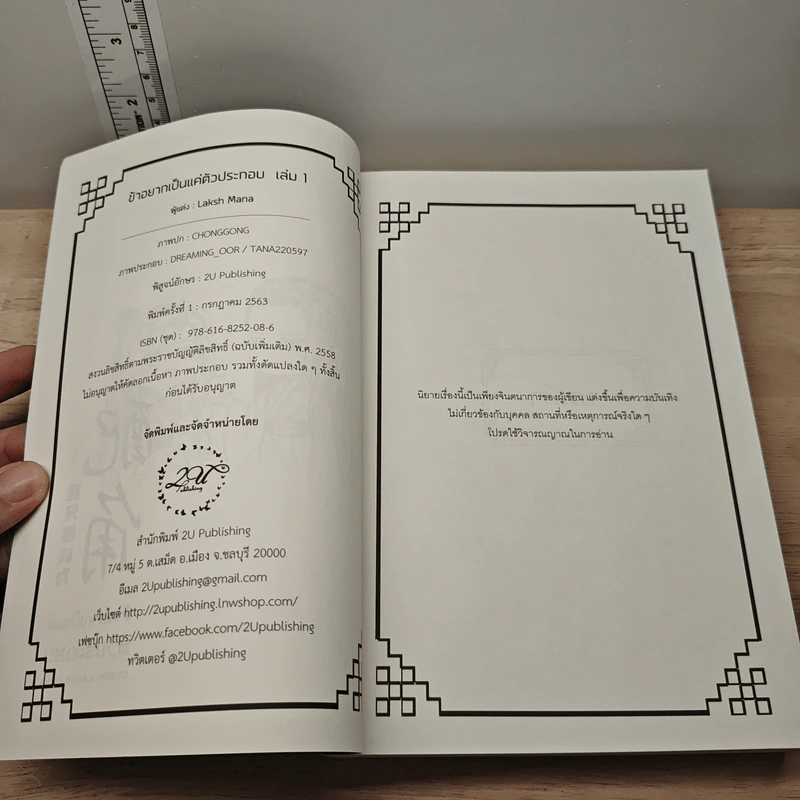 ข้าอยากเป็นแค่ตัวประกอบ เล่ม 1
ผู้แต่ง : Laksh Mana
ภาพปก : CHONGGONG
ภาพประกอบ : DREAMING_OOR / TANA220597
พิสูจน์อักษร : 2U Publishing
พิมพ์ครั้งที่ 1 : กรกฎาคม 2563
ISBN (ชุด) : 978-616-8252-08-6
สงวนลิขสิทธิ์ตามพระราชบัญญัติลิขสิทธิ์ (ฉบับเพิ่มเติม) พ.ศ. 2558
ไม่อนุญาตให้คัดลอกเนื้อหา ภาพประกอบ รวมทั้งดัดแปลงใด ๆ ทั้งสิ้น
ก่อนได้รับอนุญาต
จัดพิมพ์และจัดจำหน่ายโดย
2U
Publishing
สำนักพิมพ์ 2U Publishing
7/4 หมู่ 5 ต.เสม็ด อ.เมือง จ.ชลบุรี 20000
อีเมล 2Upublishing@gmail.com
เว็บไซต์ http://2upublishing.lnwshop.com/
เฟซบุ๊ก https://www.facebook.com/2Upublishing
ทวิตเตอร์ @2Upublishing
นิยายเรื่องนี้เป็นเพียงจินตนาการของผู้เขียน แต่งขึ้นเพื่อความบันเทิง
ไม่เกี่ยวข้องกับบุคคล สถานที่หรือเหตุการณ์จริงใด ๆ
โปรดใช้วิจารณญาณในการอ่าน
3
2